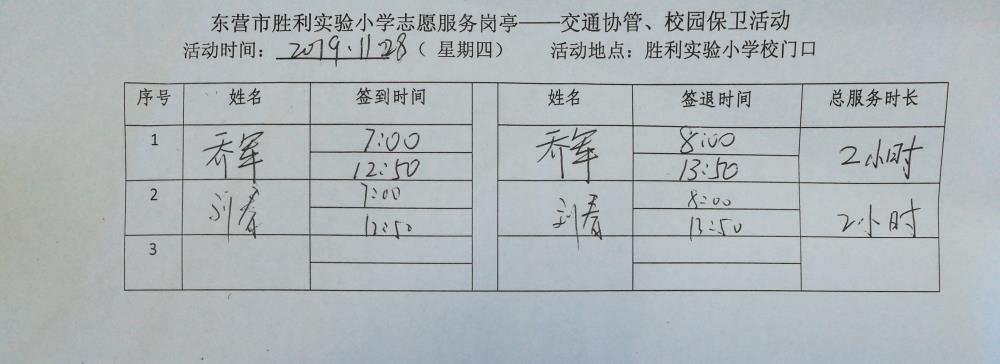 东营市胜利实验小学志愿服务岗亭——交通协管、校园保卫活动
活动时间：2019.11.28（ 星期四） 活动地点：胜利实验小学校门口
序号 姓名 签到时间 姓名 签退时间 总服务时长
1 乔军 7:00 乔军 8:00 2小时
12:50 13:50
2 刘春 7:00 刘春 8:00 2小时
12:50 13:50
3